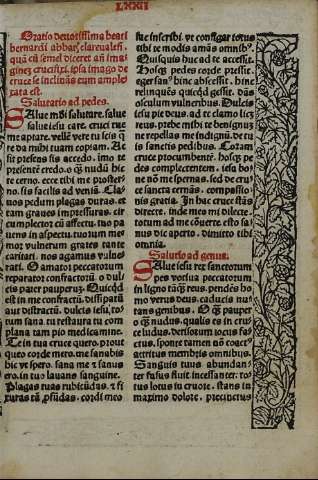 LXXII
Oratio deuotissima beati
bernardi abbatis clareualeñ.
quā cū semel diceret añ imaginē
crucifixi. ipsa imago de
cruce se inclinās eum amplexata
est.
Salutatio ad pedes.
Salue mūdi salutare. salue
salue iesu care. cruci tue
me aptare. vellē vere tu scis q̄re
da mihi tuam copiam. Ac
si presens sis accedo. imo te
presentē credo. o q̄ȝ nudū hic
te cerno. ecce tibi me prosterno.
sis facilis ad veniā. Clauos
pedum plagas duras. et
tam graues impressuras. circumplector
cū affectu. tuo pauens
in aspectu. tuorum memor
vulnerum grates tante
caritati. nos agamus vulnerati.
O amator peccatorum
reparator confractorū. o dulcis
pater pauperuȝ. Quicqd
est in me confractū. dissipatū
aut distractū. dulcis iesu, totum
sana. tu restaura tu complana
tam pio medicamine.
Te in tua cruce quero. prout
queo corde mero. me sanabis
hic vt spero. sana me & sanus
ero. in tuo lauans sanguine.
Plagas tuas rubicūdas. & fixuras
tā ꝓfūdas. cordi meo
fac inscribi. vt configar totus
tibi te modis amās omnibꝰ.
Quisquis huc ad te accessit.
Hosqȝ pedes corde pressit.
eger sanꝰ hinc abscessit. hinc
relinquēs quicqd gessit. dās
osculum vulneribus. Dulcis
iesu pie deus. ad te clamo licȝ
reus. prebe mihi te benignuȝ
ne repellas me indignū. de tuis
sanctis pedibus. Coram
cruce procumbentē. hosqȝ pedes
complectentem. iesu bone
nō me spernas. sed de cruce
sancta cernās. compassionis
gratia. In hac cruce stās
directe. inde meo mi dilecte.
totum ad me cōuerte. esto sanus
dic aperto. dimitto tibi
omnia.
Salutatio ad genua.
Salue iesu rex sanctorum
spes votiua peccatorum
in ligno tāqȝ reus. pendēs homo
verus deus. caducis nutans
genibus. O qȝ pauper
o qȝ nudus. qualis es in cruce
ludus. derisorum iocus factus.
sponte tamen nō coactꝰ
attritus membris omnibus.
Sanguis tuus abundanter
fusus fluit incessanter. totus
lotus in cruore. stans in
maximo dolore. precinctus